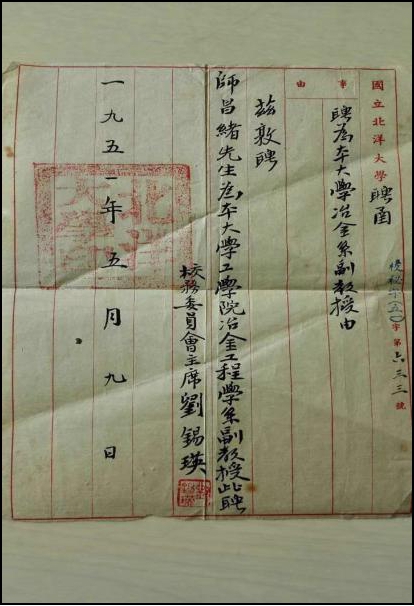 國立北洋大學聘函
字第六三三號
事由
聘為本大學冶金系副教授由
茲敦聘
師昌緒先生為本大學工學院冶金工程學系副教授此聘
校務委員會主席劉錫瑛
一九五一年五月九日